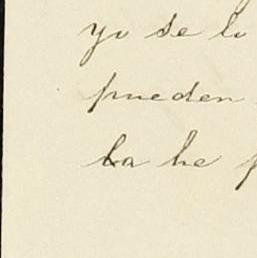 yo se lo
pueden
la he